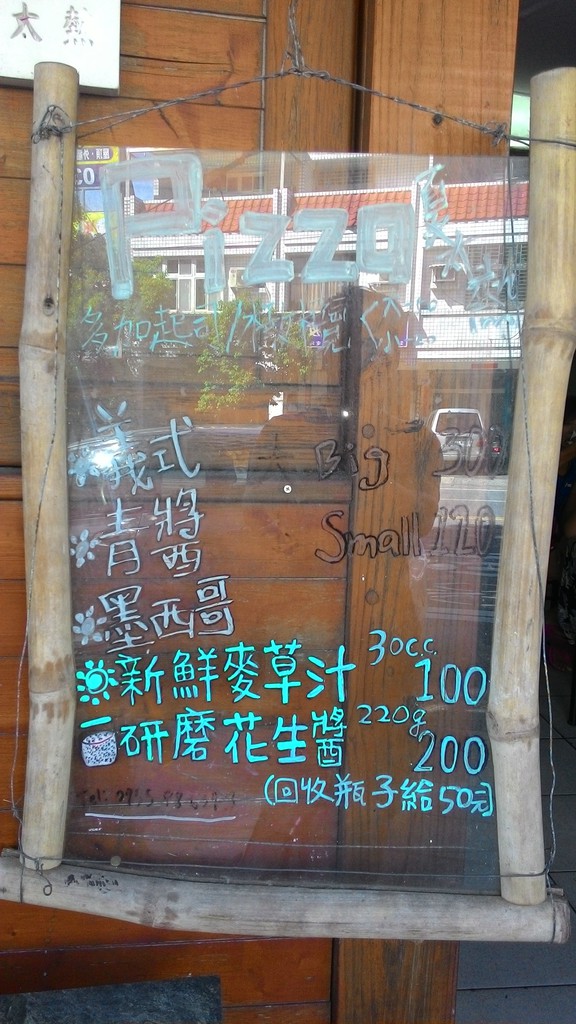 太熱
Pizza 夏天太熱
多加起司
義式 Big 300
青醬 Small 120
墨西哥
新鮮麥草汁 30c.c. 100
研磨花生醬 220g 200
(回收瓶子給50元